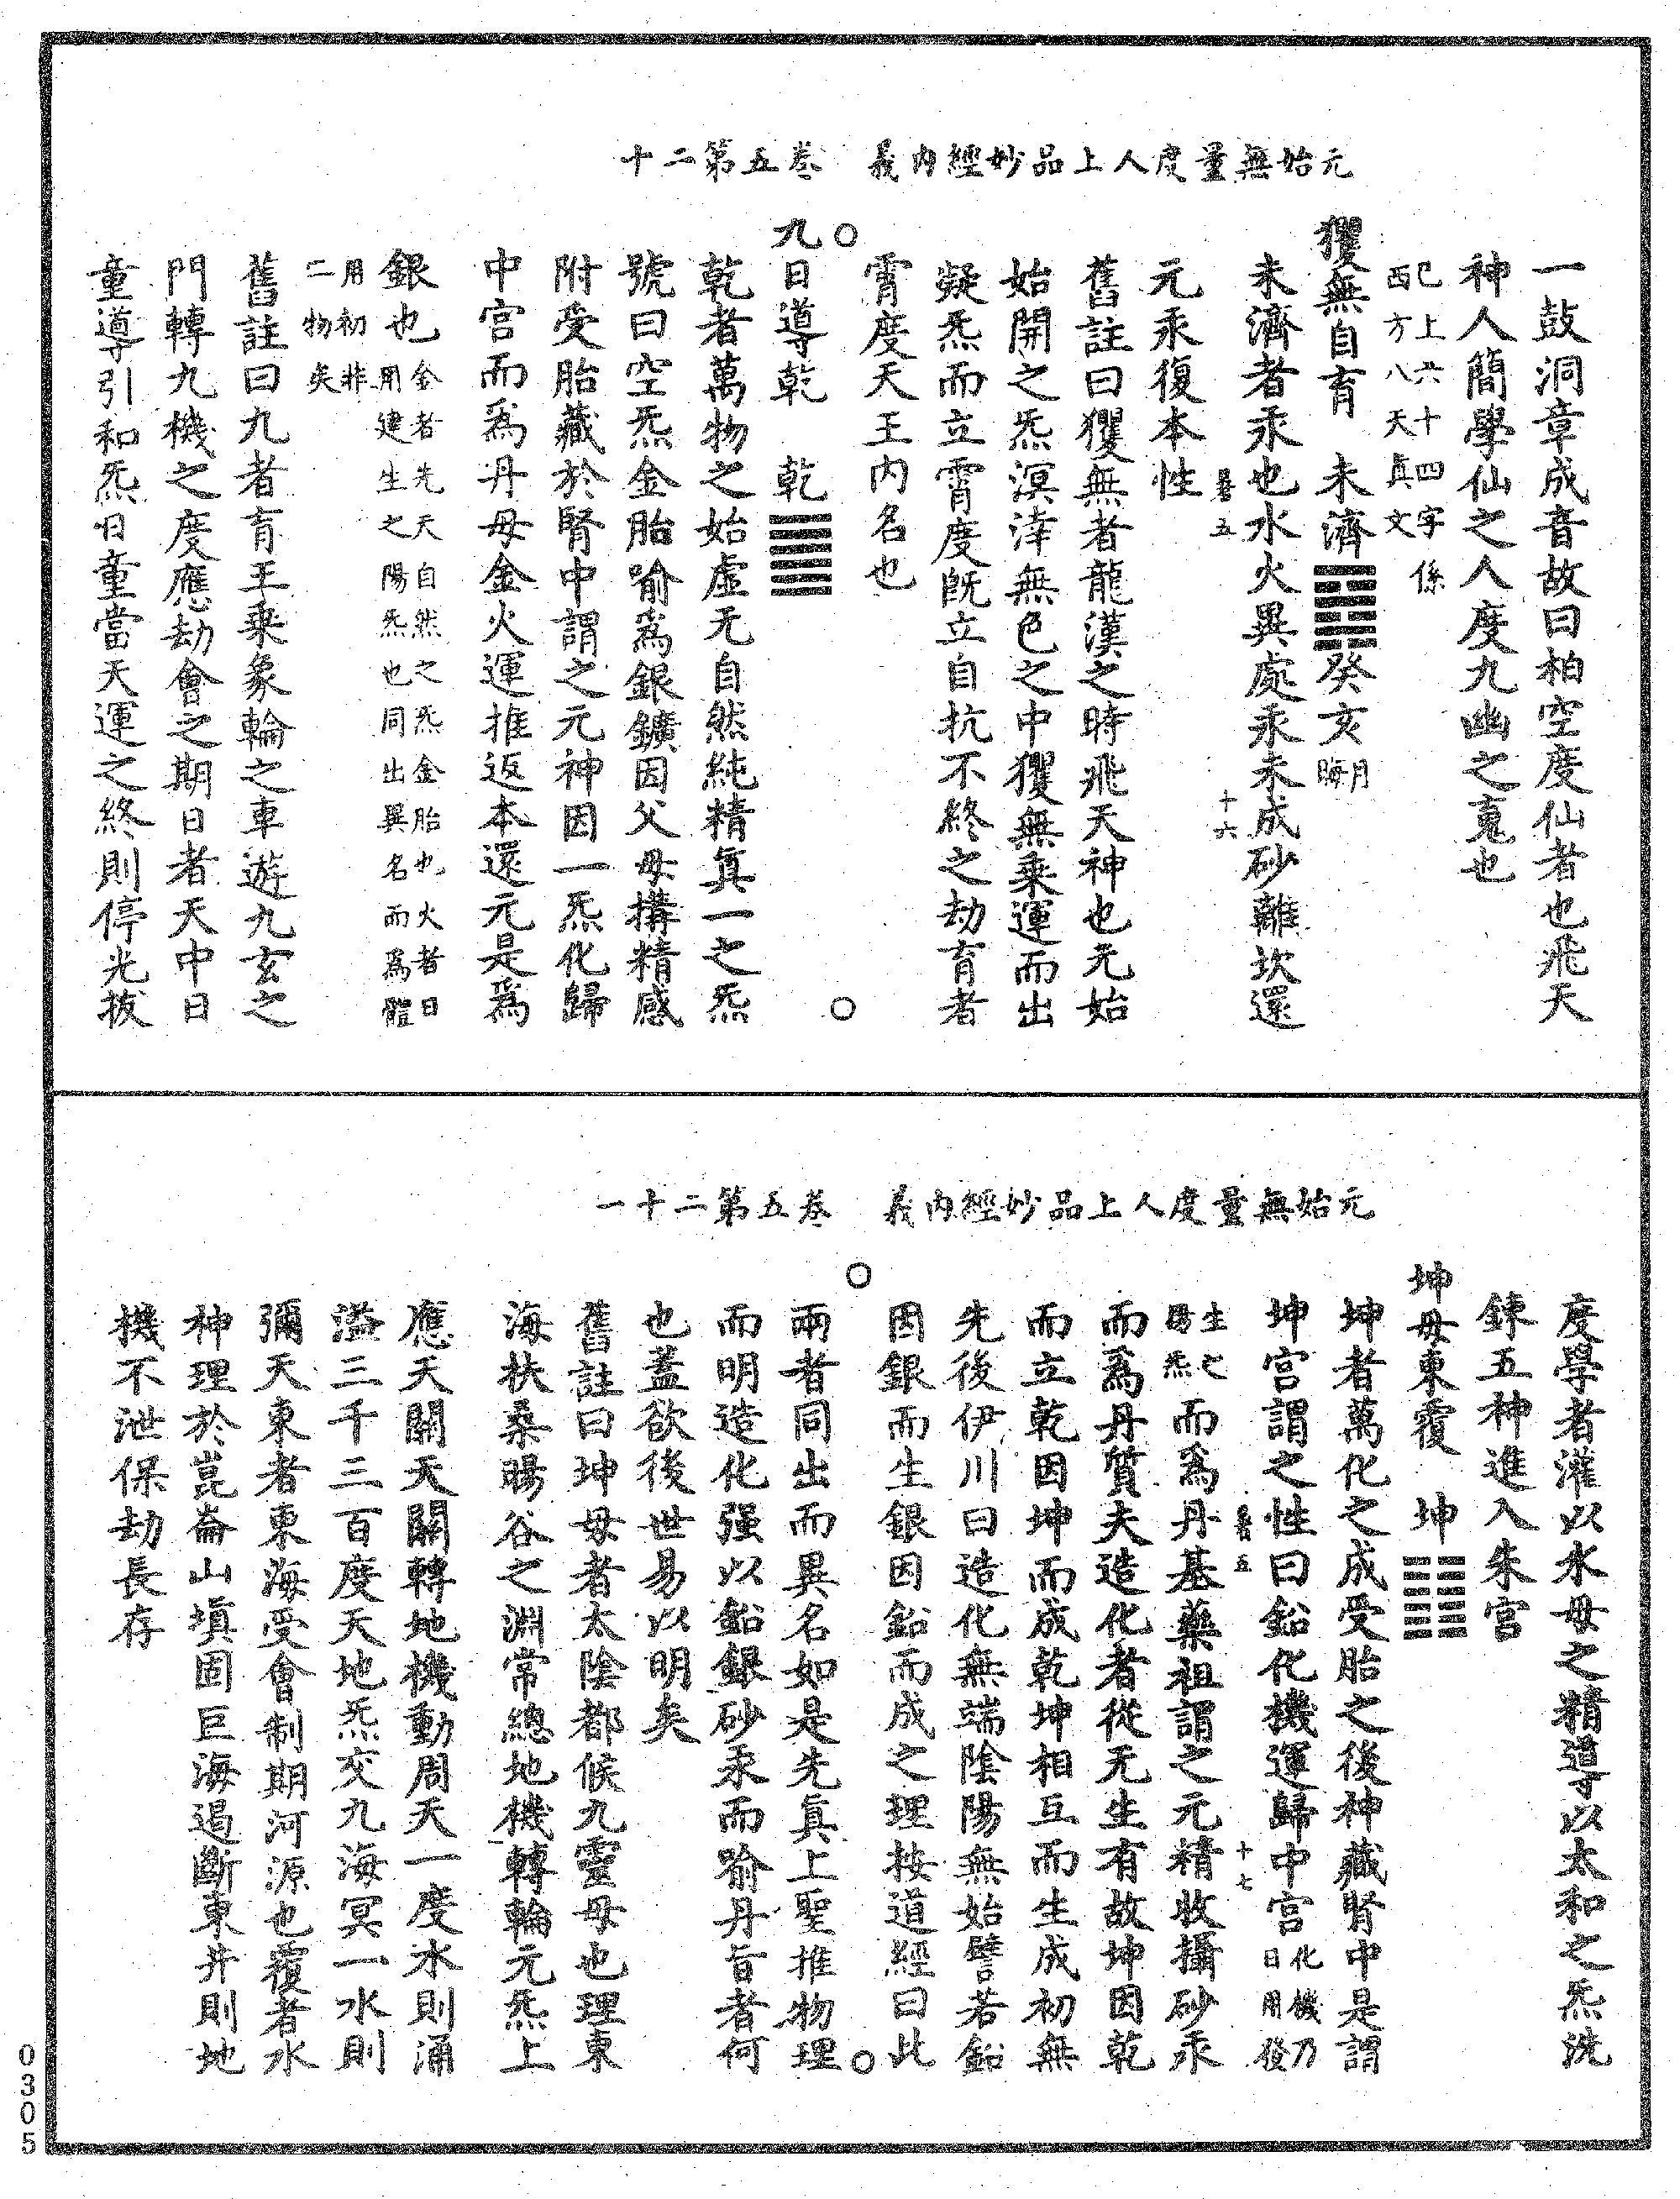 元始無量度人上品妙經內義　卷五第二十
一鼓洞章成音故曰柏空度仙者也飛天
神人簡學仙之人度九幽之䰟也
已上六十四字係
西方八天真文
玃無自育　未濟䷿癸亥月晦
未濟者汞也水火異處汞未成砂離坎還
暑五　十六
元汞復本性
舊註曰玃無者龍漢之時飛天神也无始
始開之炁溟涬無色之中玃無乗運而出
凝炁而立霄度既立自抗不終之劫育者
霄度天王内名也
九日導乾　乾䷀
乾者萬物之始虚无自然純精真一之炁
號曰空炁金胎喻爲銀鑛因父母搆精感
附受胎藏於腎中謂之元神因一炁化歸
中宫而爲丹母金火運推返本還元是爲
銀也金者先天自然之炁金胎也火者日
用建生之陽炁也同出異名而爲體
用初非
二物矣
舊註曰九者育王乗象輪之車遊九玄之
門轉九機之度應劫會之期日者天中日
童導引和炁日童當天運之終則停光拔
元始無量度人上品妙經內義　卷五第二十一
度學者灌以水母之精導以太和之炁洗
鍊五神進入朱宫
坤母東覆　坤䷁
坤者萬化之成受胎之後神藏腎中是謂
坤宫謂之性曰鉛化機運歸中宫化機乃
日用發
暑五　十七
生之
陽炁而爲丹基藥祖謂之元精收攝砂汞
而爲丹質夫造化者從无生有故坤因乾
而立乾因坤而成乾坤相互而生成初無
先後伊川曰造化無端陰陽無始譬若鉛
因銀而生銀因鉛而成之理按道經曰此
兩者同出而異名如是先真上聖推物理
而明造化强以鉛銀砂汞而喻丹旨者何
也蓋欲後世易以明矣
舊註曰坤母者太陰都候九靈母也理東
海扶桑暘谷之淵常總地機轉輪元炁上
應天關天關轉地機動周天一度水則涌
溢三千三百度天地炁交九海冥一水則
彌天東者東海受會制期河源也覆者水
神理於崑崙山填固巨海遏斷東井則地
機不泄保劫長存
0305